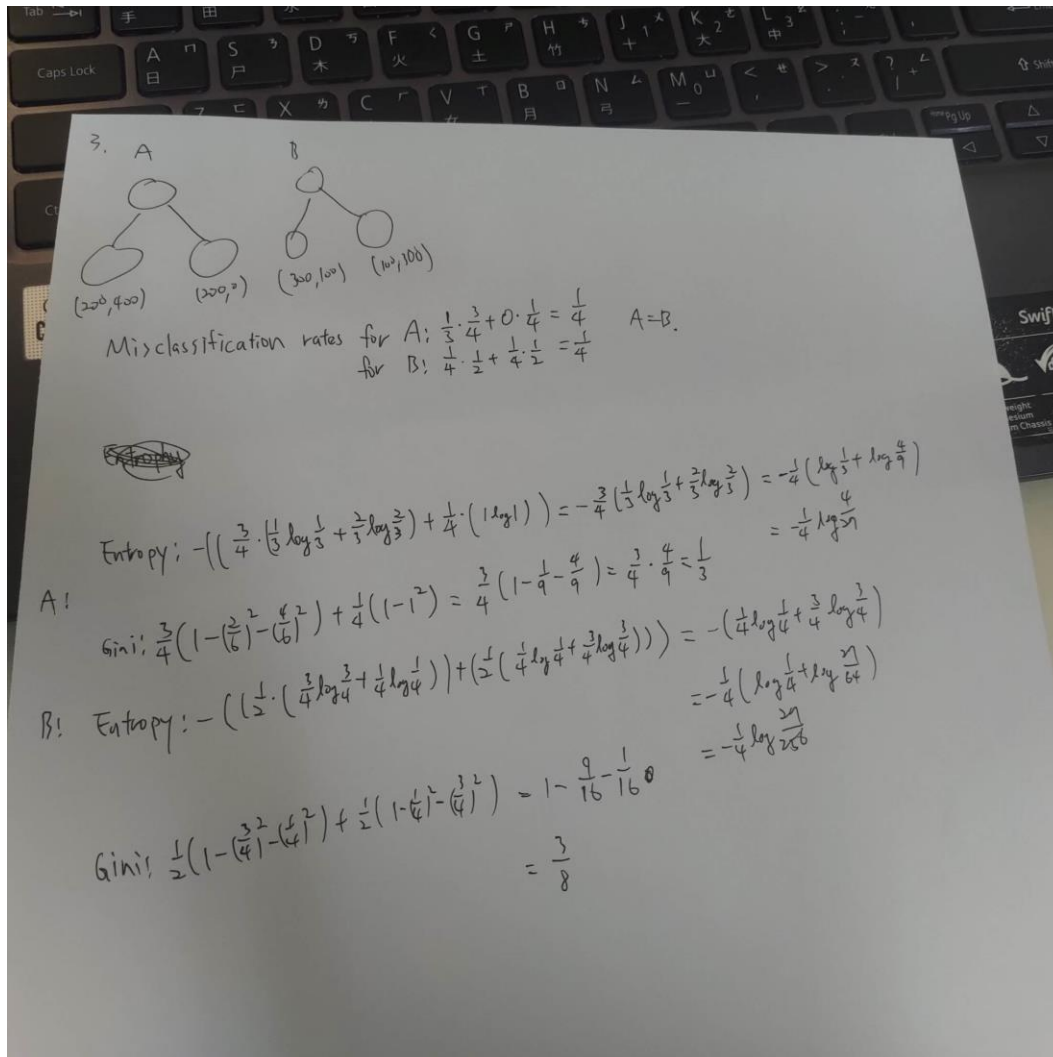 Tab
手
田
Caps Lock
A 日
S 尸
D 木
F 火
G 土
H 竹
J 十 1
K 大 2
L 中 3
Shift
Z
X
C
V 女
B 月
N 弓
M 一 0
Pg Up
Ct
3. A B
(200,400) (200,0) (300,100) (100,300)
Misclassification rates for A: 1/3 · 3/4 + 0 · 1/4 = 1/4 A=B.
for B: 1/4 · 1/2 + 1/4 · 1/2 = 1/4
A: Entropy: -((3/4 · (1/3 log 1/3 + 2/3 log 2/3) + 1/4 · (1 log 1)) = -3/4 (1/3 log 1/3 + 2/3 log 2/3) = -1/4 (log 1/3 + log 4/9)
= -1/4 log 4/27
Gini: 3/4 (1 - (2/6)² - (4/6)²) + 1/4 (1 - 1²) = 3/4 (1 - 1/9 - 4/9) = 3/4 · 4/9 = 1/3
B: Entropy: -((1/2 · (3/4 log 3/4 + 1/4 log 1/4)) + (1/2 (1/4 log 1/4 + 3/4 log 3/4))) = -(1/4 log 1/4 + 3/4 log 3/4)
= -1/4 (log 1/4 + log 27/64)
= -1/4 log 27/256
Gini: 1/2 (1 - (3/4)² - (1/4)²) + 1/2 (1 - (1/4)² - (3/4)²) = 1 - 9/16 - 1/16
= 3/8
Swif
eight
esium
m Chassis